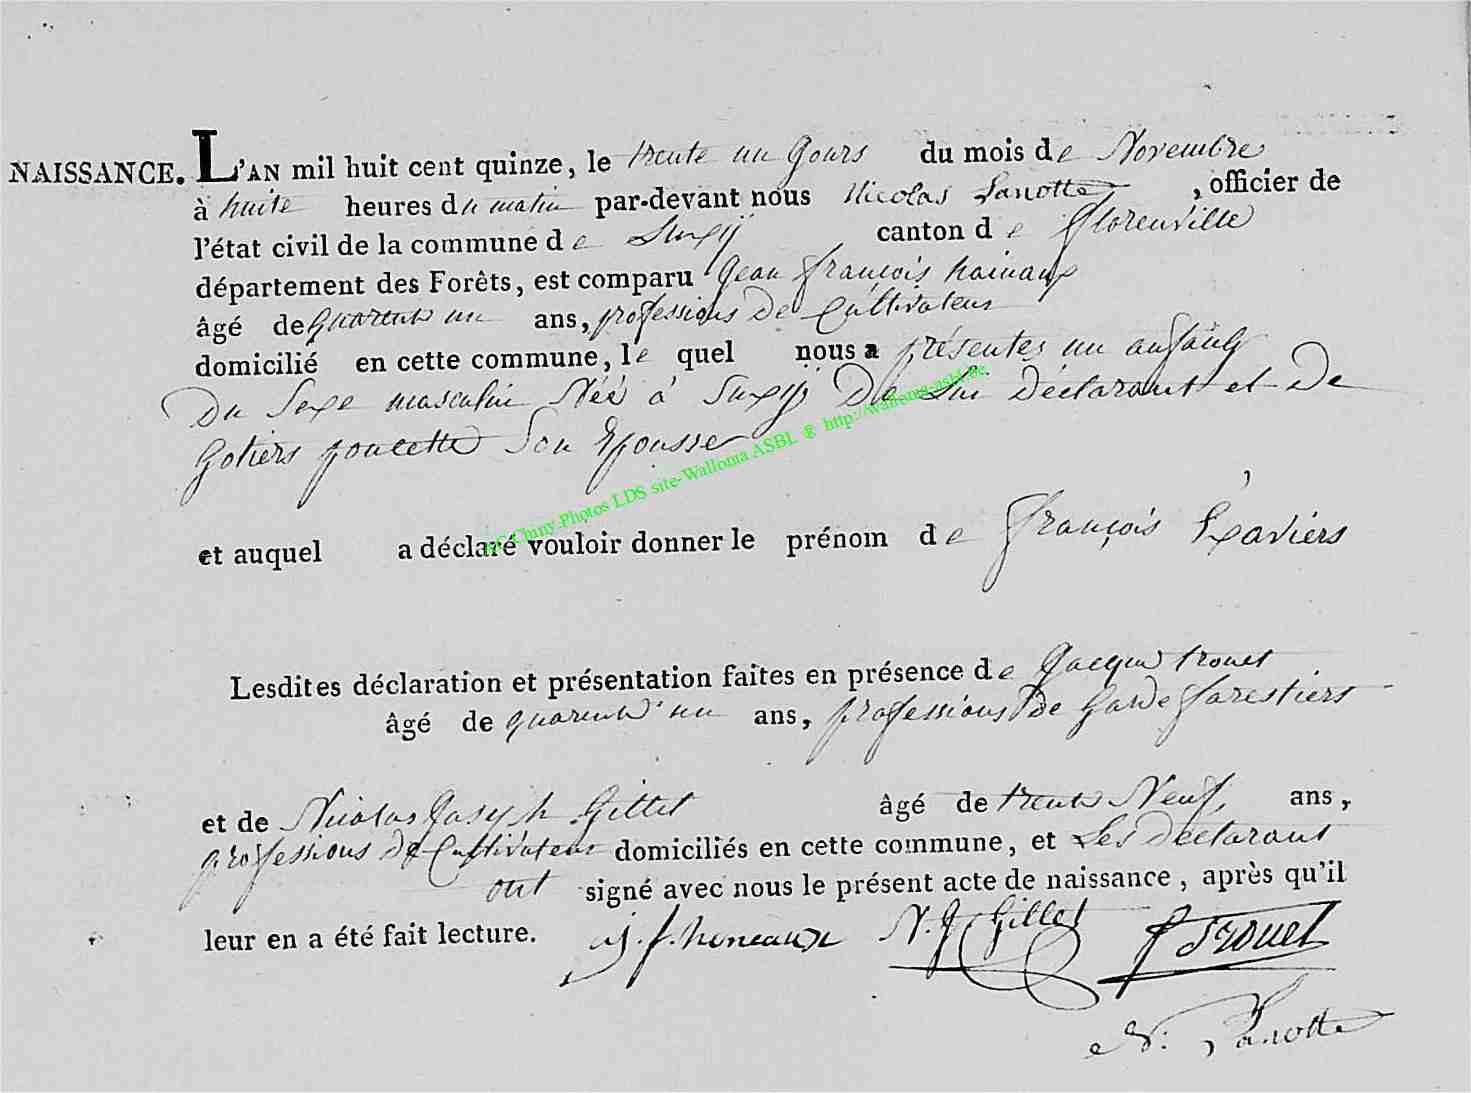 NAISSANCE. L'AN mil huit cent quinze, le trente un Jours du mois de Novembre
à huite heures du matin par-devant nous Nicolas Lanotte, officier de
l'état civil de la commune de Suxÿ canton de florenville
département des Forêts, est comparu Jean françois hainaux
âgé de quarente un ans, professions De Cultivateur
domicilié en cette commune, le quel nous a présentes un anfant
Du Sexe masculin Néé à Suxÿ De Lui Déclarant et De
poncette Son Epousse
et auquel a déclaré vouloir donner le prénom de françois Xaviérs
Lesdites déclaration et présentation faites en présence de Jacque trouet
âgé de quarente un ans, professions De garde forestiers
et de Nicolas Joseph Gillet âgé de trente Neuf ans,
professions De Cultivateur domiciliés en cette commune, et Les Déclarant
ont signé avec nous le présent acte de naissance, après qu'il
leur en a été fait lecture. j. f. honeaux N. J Gillet J Trouet
N. Lanotte
AC Chiny-Photos LDS site-Wallonia ASBL @ http://wallonia-asbl.be